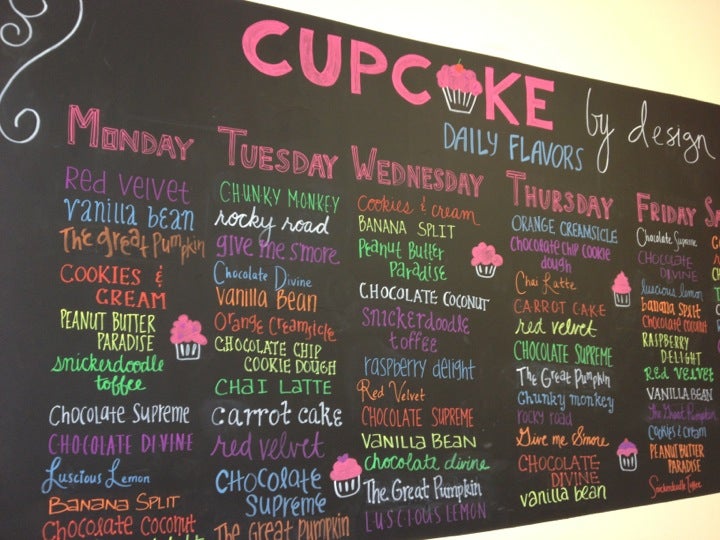 CUPCAKE
by design
DAILY FLAVORS
MONDAY
Red Velvet
vanilla bean
The great Pumpkin
COOKIES &
CREAM
PEANUT BUTTER
PARADISE
snickerdoodle
toffee
Chocolate Supreme
CHOCOLATE DIVINE
Luscious Lemon
BANANA SPLIT
Chocolate Coconut
TUESDAY
CHUNKY MONKEY
rocky road
give me s'more
Chocolate Divine
Vanilla Bean
Orange Creamsicle
CHOCOLATE CHIP
COOKIE DOUGH
CHAI LATTE
carrot cake
red velvet
CHOCOLATE
SUPREME
THE GREAT PUMPKIN
WEDNESDAY
Cookies & cream
BANANA SPLIT
Peanut Butter
Paradise
CHOCOLATE COCONUT
SNICKERDOODLE
TOFFEE
raspberry delight
Red Velvet
CHOCOLATE SUPREME
VANILLA BEAN
chocolate divine
The Great Pumpkin
LUSCIOUS LEMON
THURSDAY
ORANGE CREAMSICLE
Chocolate Chip Cookie
dough
Chai Latte
CARROT CAKE
red velvet
CHOCOLATE SUPREME
The Great Pumpkin
Chunky monkey
rocky road
Give me S'more
CHOCOLATE
DIVINE
vanilla bean
FRIDAY
Chocolate Supreme
CHOCOLATE
DIVINE
luscious lemon
banana split
Chocolate coconut
RASPBERRY
DELIGHT
RED VELVET
VANILLA BEAN
The Great Pumpkin
Cookies & Cream
PEANUT BUTTER
PARADISE
Snickerdoodle Toffee